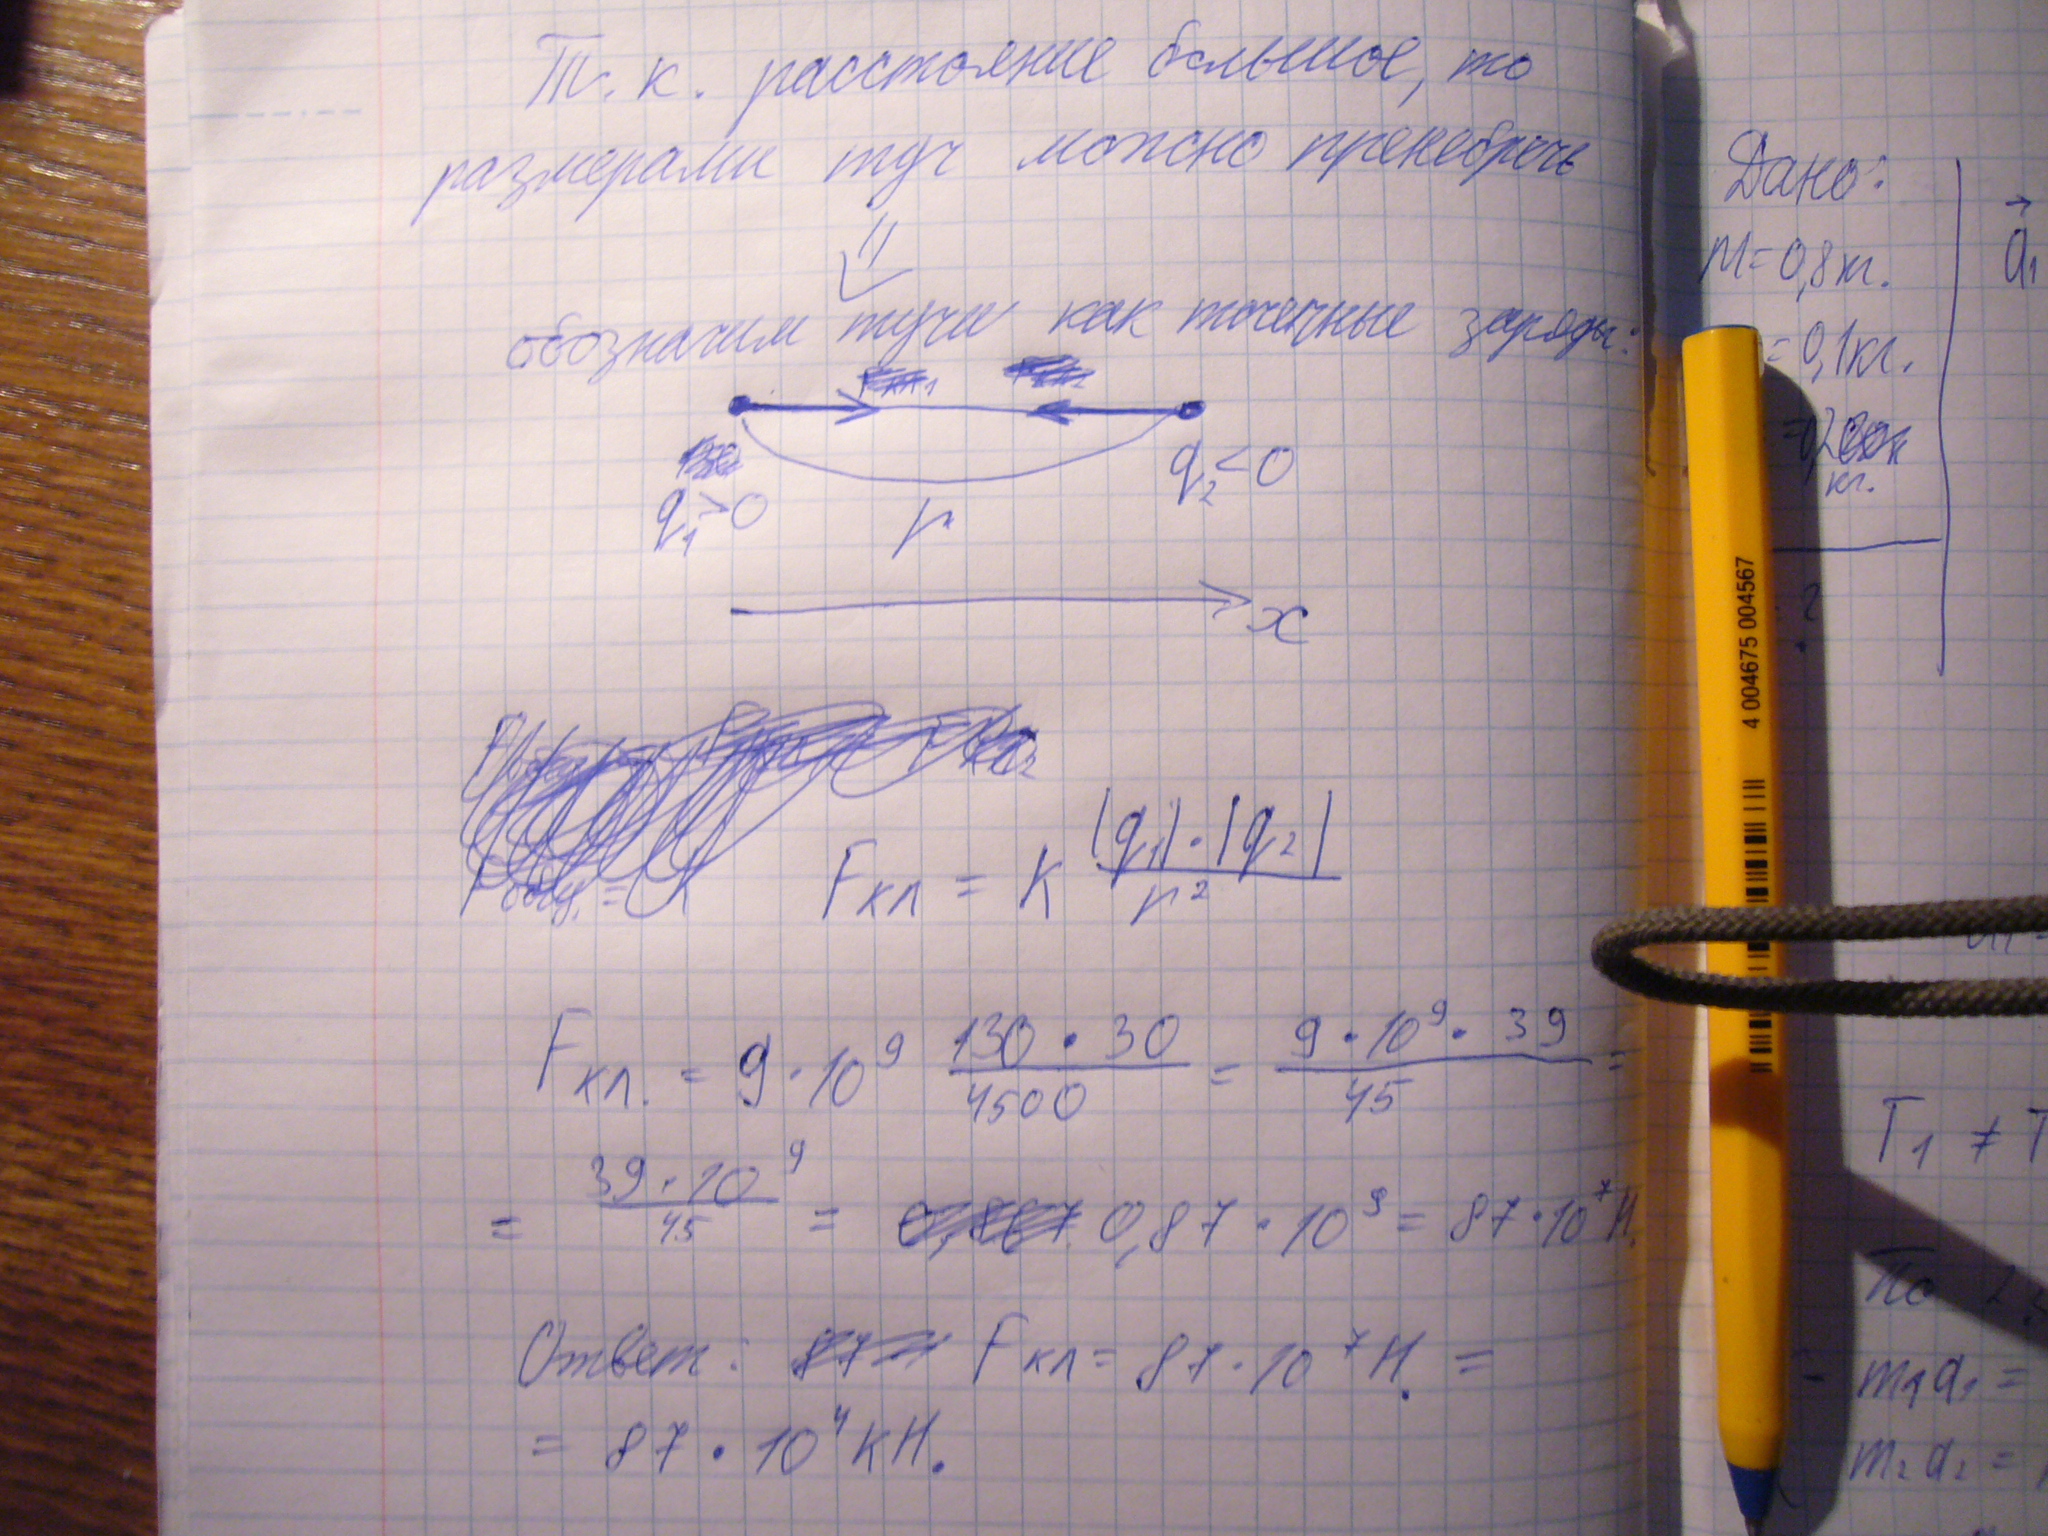 Т. к. расстояние большое, то
размерами туч можно пренебречь
⇓
обозначим тучи как точечные заряды:
q₁>0
q₂<0
r
x
Fкл = K |q₁|·|q₂| / r²
Fкл. = 9·10⁹ 130·30 / 4500 = 9·10⁹·39 / 45 =
= 39·10⁹ / 45 = 0,87·10⁹ = 87·10⁷Н.
Ответ: Fкл = 87·10⁷Н. =
= 87·10⁴кН.
Дано:
= 0,8кг.
= 0,1кг.
кг.
?
a⃗₁
T₁ ≠ T
По 2
m₁a₁ =
m₂a₂ =
4 004675 004567